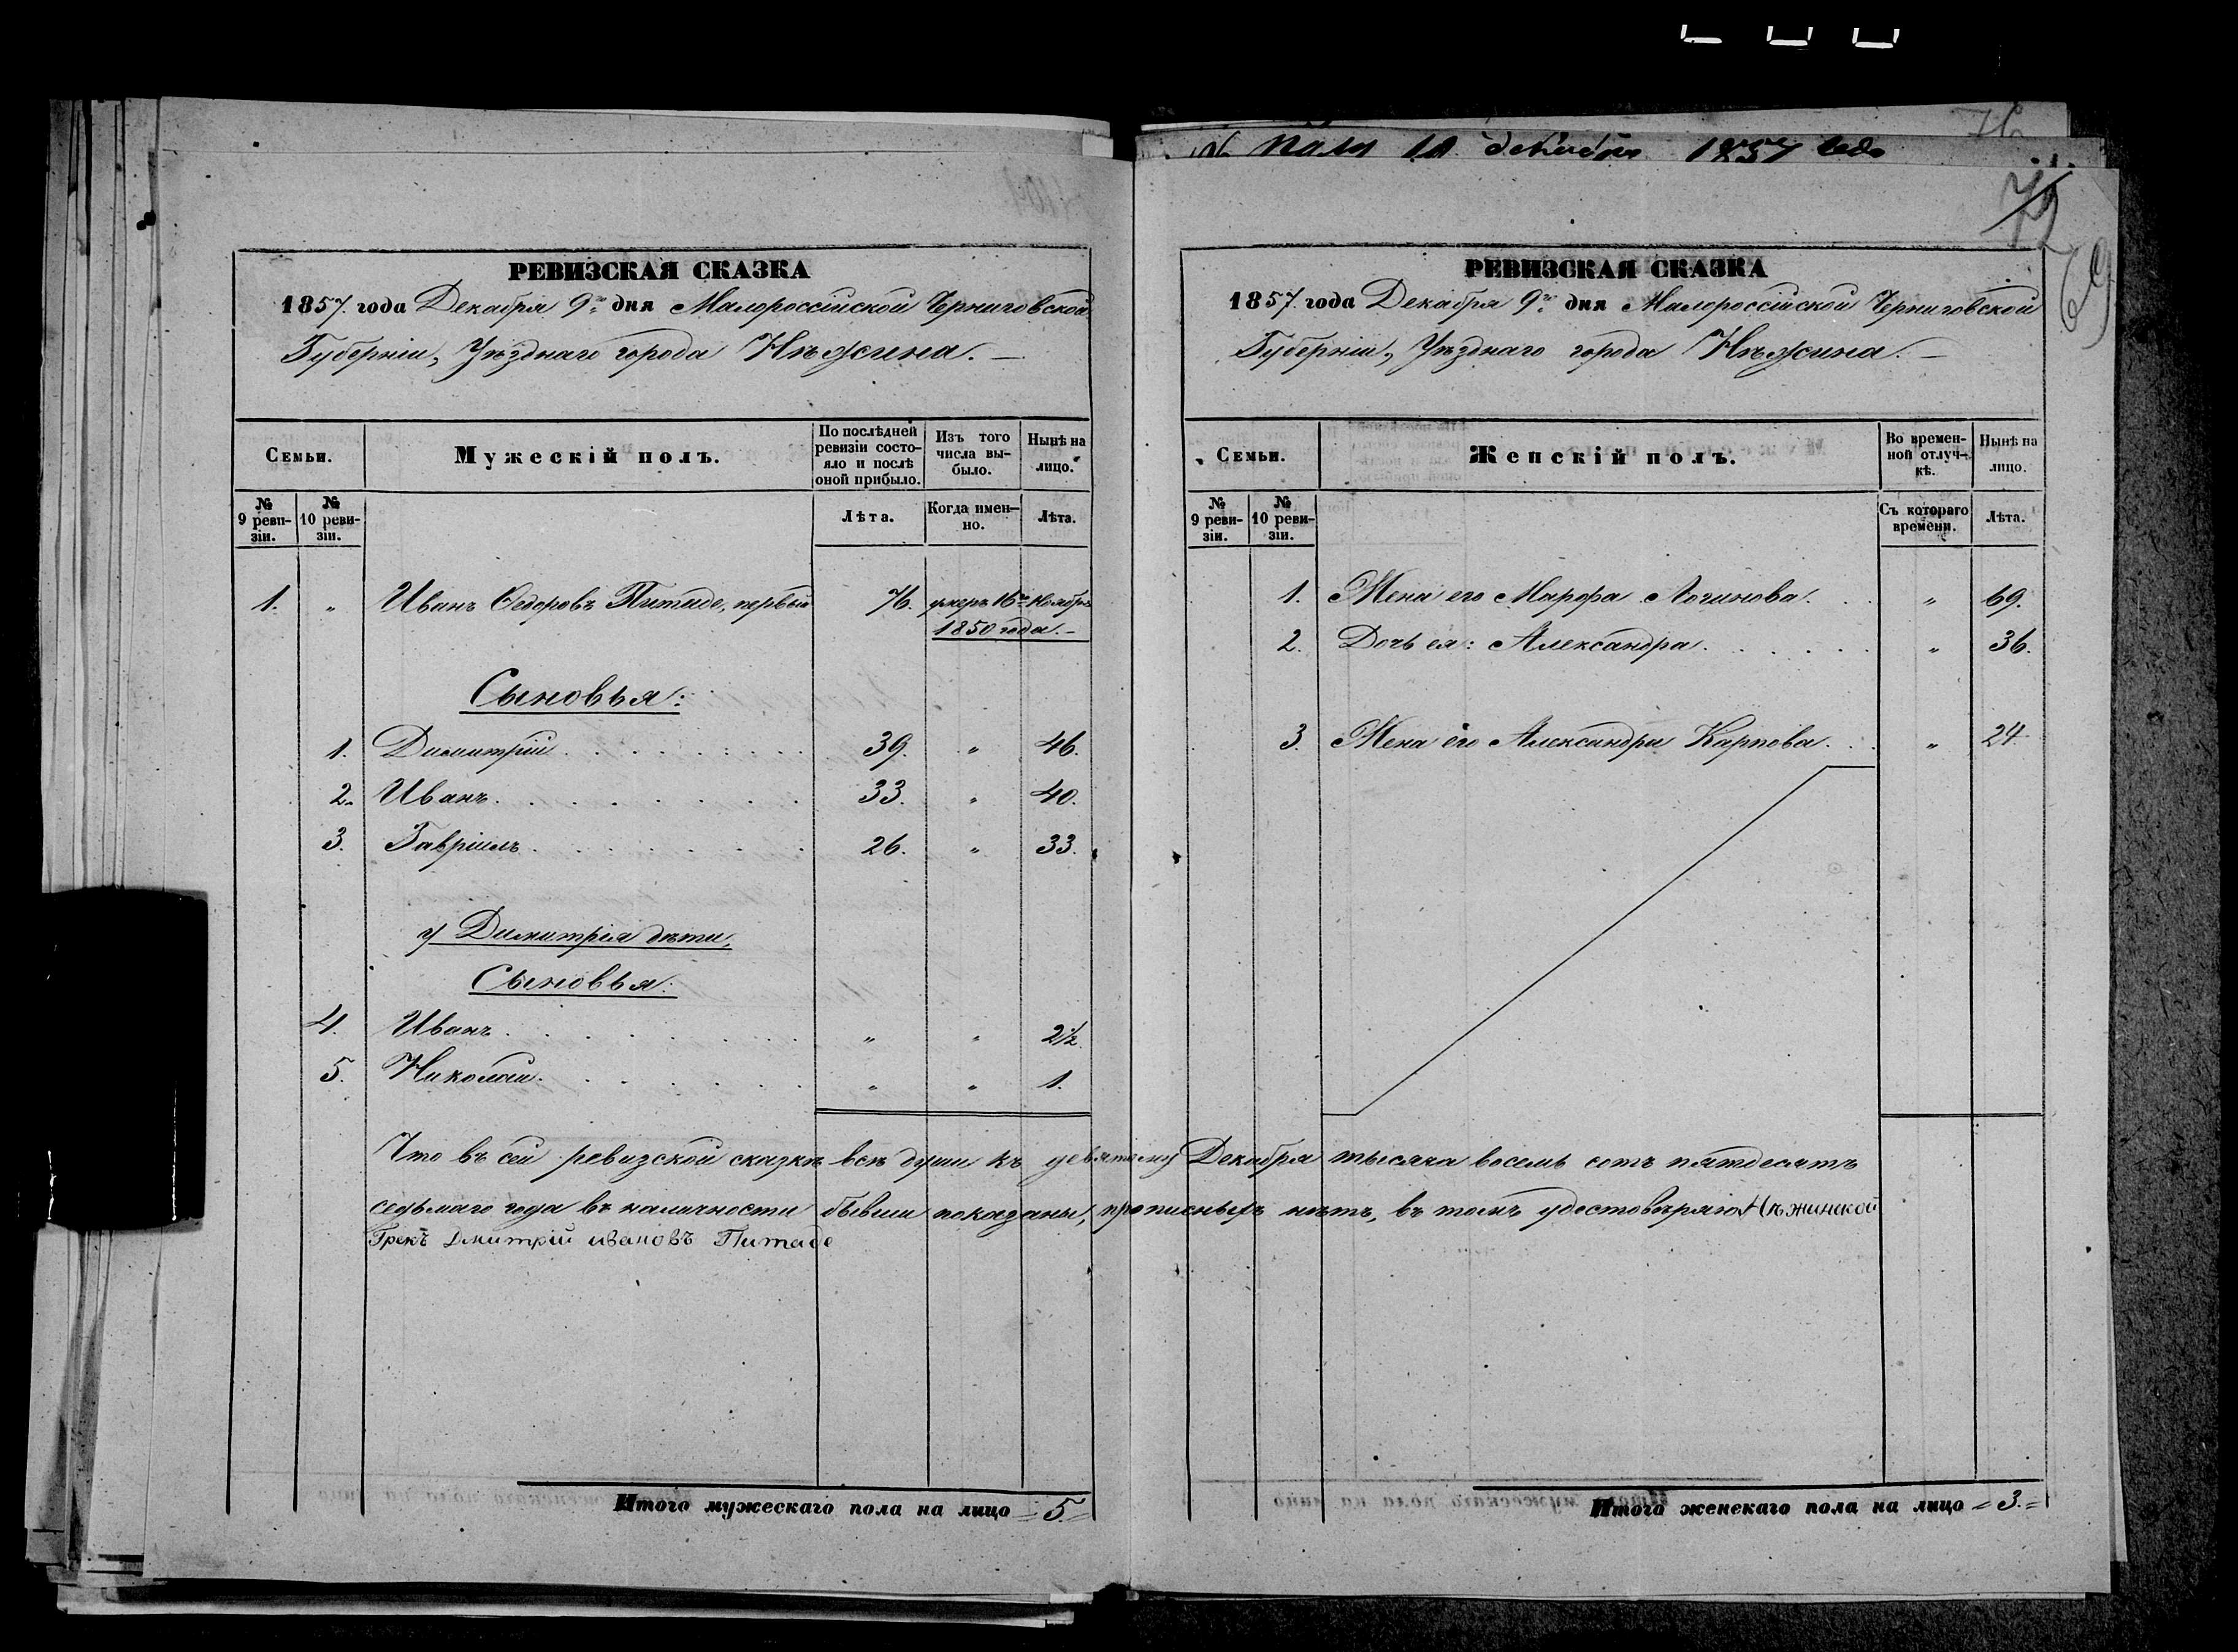 пола 10 декабря 1857 года
72
69
РЕВИЗСКАЯ СКАЗКА
1857. года Декабря 9го дня Малороссійской Черниговской
Губерніи, Уѣзднаго города Нѣжина.
Семьи.
Мужескій полъ.
По послѣдней ревизіи состояло и послѣ оной прибыло.
Изъ того числа выбыло.
Нынѣ на лицо.
№ 9 ревизіи.
№ 10 ревизіи.
Лѣта.
Когда именно.
Лѣта.
1. „ Иванъ Ѳедоровъ Питаде, первый 76. умеръ 16го Ноября
1850 года. –
Сыновья:
1. Димитрій 39. „ 46.
2. Иванъ. 33. „ 40.
3. Гавріилъ 26. „ 33.
у Димитрія дѣти,
Сыновья:
4. Иванъ „ „ 2½.
5. Николай. „ „ 1.
РЕВИЗСКАЯ СКАЗКА
1857. года Декабря 9го дня Малороссійской Черниговской
Губерніи, Уѣзднаго города Нѣжина. –
Семьи.
Женскій полъ.
Во временной отлучкѣ.
Нынѣ на лицо.
№ 9 ревизіи.
№ 10 ревизіи.
Съ котораго времени.
Лѣта.
1. Жена его Марфа Логинова. „ 69.
2. Дочь ея: Александра. „ 36.
3. Жена его Александра Карпова. „ 24
Что въ сей ревизской сказкѣ всѣ души къ девятому Декабря тысяча восемь сотъ пятдесятъ
седьмаго года въ наличности бывши показаны, прописныхъ нѣтъ, въ томъ удостовѣряю Нѣжинской
Грекъ Дмитрій ивановъ Питаде
Итого мужескаго пола на лицо = 5. =
Итого женскаго пола на лицо = 3. =